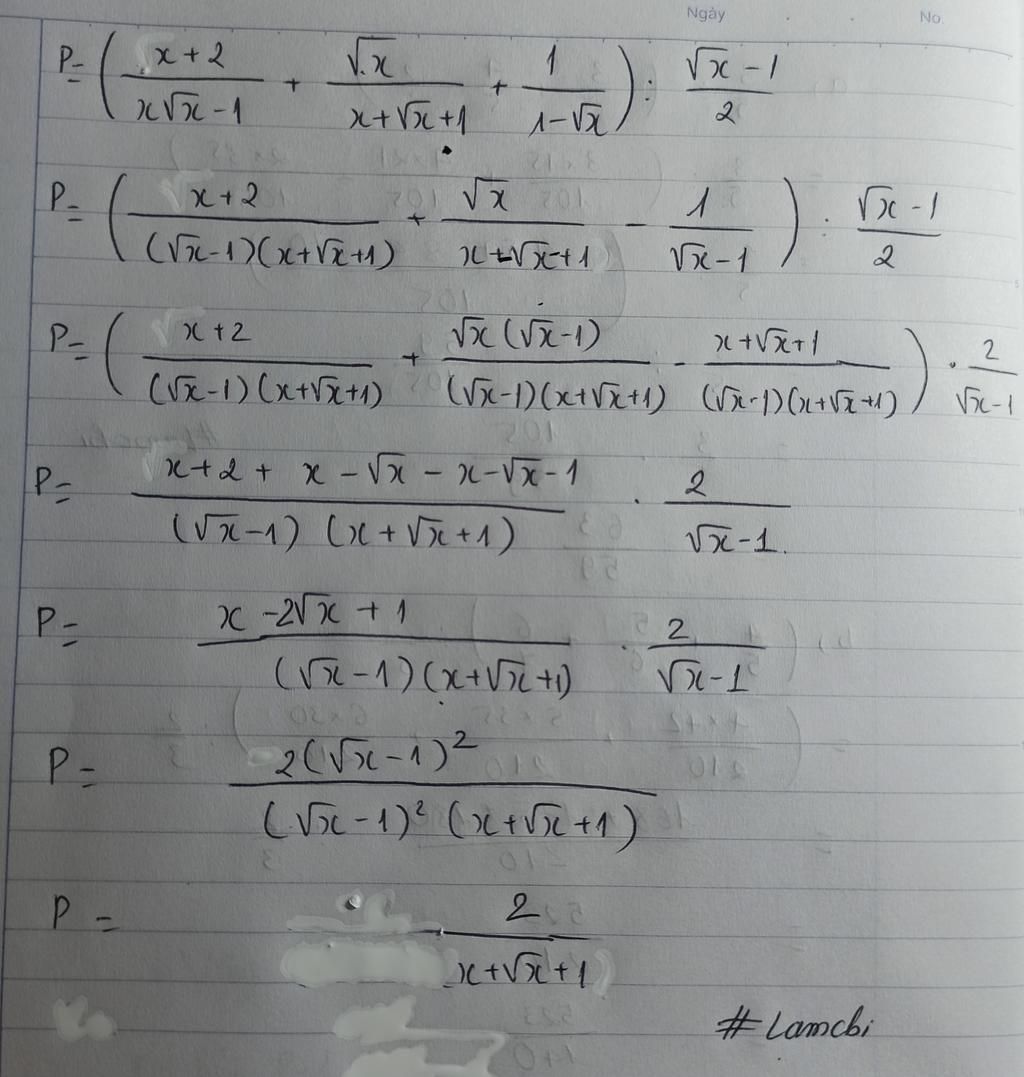 Ngày No.
P = ( (x+2)/(x√x-1) + √x/(x+√x+1) + 1/(1-√x) ) : (√x-1)/2
P = ( (x+2)/((√x-1)(x+√x+1)) + √x/(x+√x+1) - 1/(√x-1) ) : (√x-1)/2
P = ( (x+2)/((√x-1)(x+√x+1)) + √x(√x-1)/((√x-1)(x+√x+1)) - (x+√x+1)/((√x-1)(x+√x+1)) ) . 2/(√x-1)
P = (x+2+x-√x-x-√x-1)/((√x-1)(x+√x+1)) . 2/(√x-1)
P = (x-2√x+1)/((√x-1)(x+√x+1)) . 2/(√x-1)
P = 2(√x-1)²/((√x-1)²(x+√x+1))
P = 2/(x+√x+1)
#Lamcbi